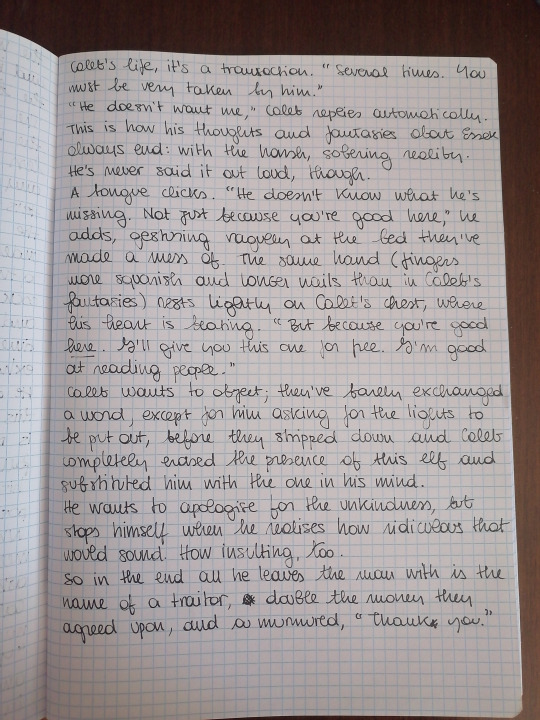 Caleb's life, it's a transaction. "Several times. You
must be very taken by him."
"He doesn't want me," Caleb replies automatically.
This is how his thoughts and fantasies about Essek
always end: with the harsh, sobering reality.
He's never said it out loud, though.
A tongue clicks. "He doesn't know what he's
missing. Not just because you're good here," he
adds, gesturing vaguely at the bed they've
made a mess of. The same hand (fingers
more squarish and longer nails than in Caleb's
fantasies) rests lightly on Caleb's chest, where
his heart is beating. "But because you're good
here. I'll give you this one for free. I'm good
at reading people."
Caleb wants to object; they've barely exchanged
a word, except for him asking for the lights to
be put out, before they stripped down and Caleb
completely erased the presence of this elf and
substituted him with the one in his mind.
He wants to apologise for the unkindness, but
stops himself when he realises how ridiculous that
would sound. How insulting, too.
So in the end all he leaves the man with is the
name of a traitor, double the money they
agreed upon, and a murmured, "thank you."